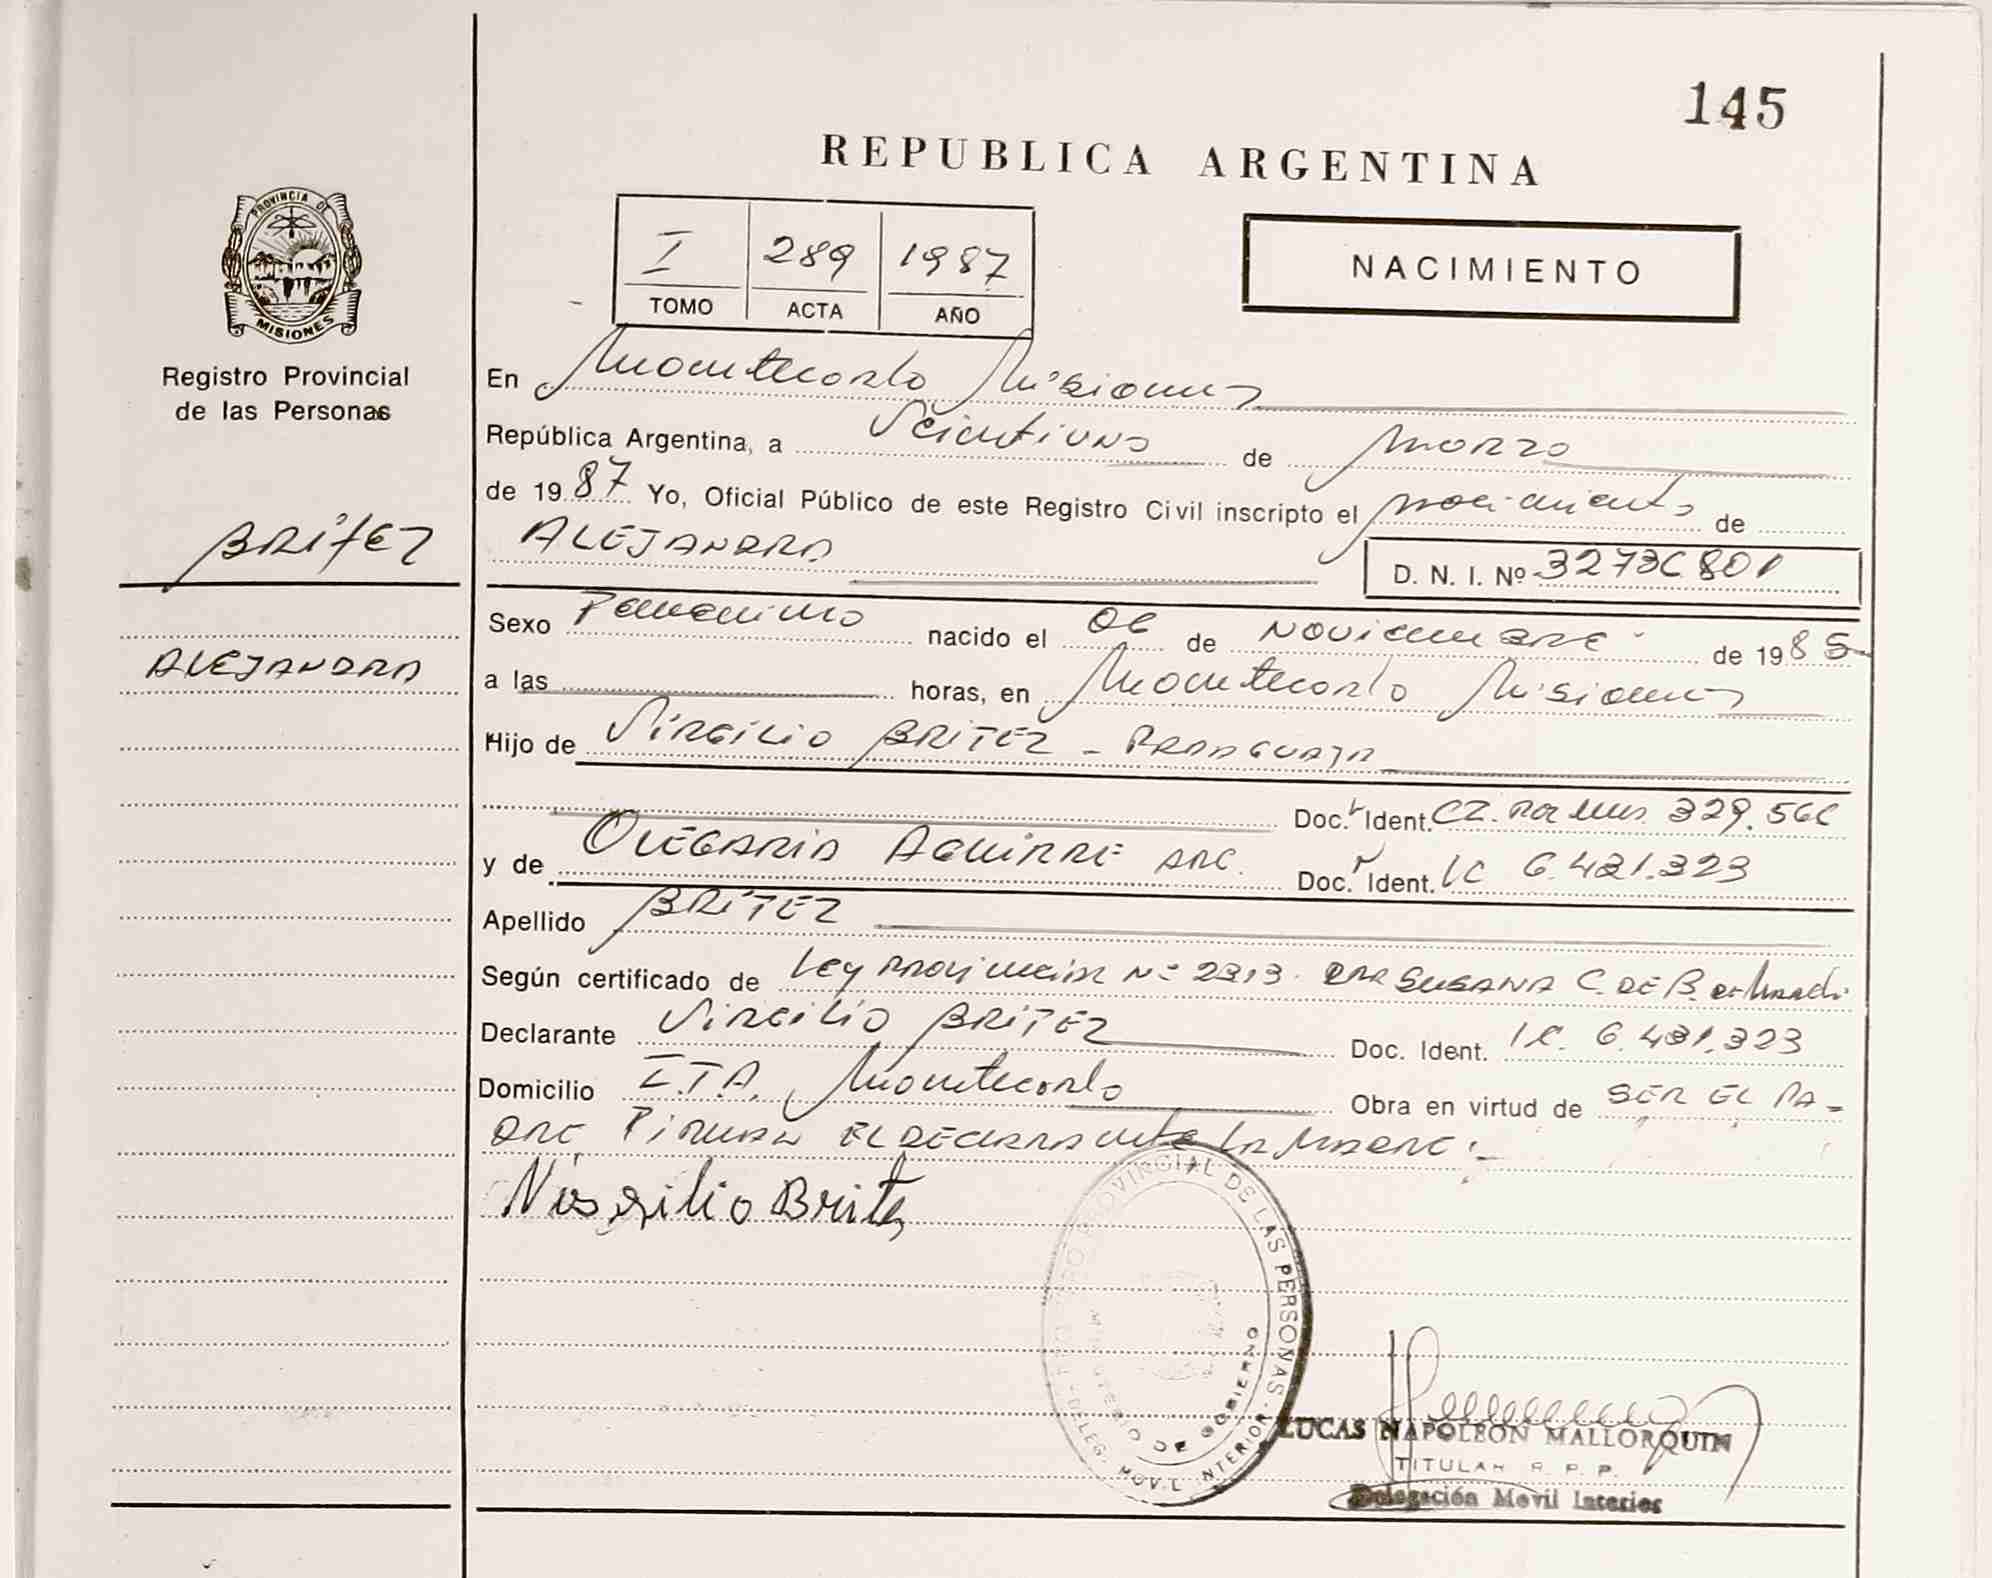 145
REPUBLICA ARGENTINA
PROVINCIA DE
MISIONES
Registro Provincial
de las Personas
I 289 1987
TOMO ACTA AÑO
NACIMIENTO
En Montecarlo Misiones
República Argentina, a Veintiuno de Marzo
de 1987 Yo, Oficial Público de este Registro Civil inscripto el nacimiento de
BRITEZ
ALEJANDRA
D. N. I. Nº 32736801
Sexo Femenino nacido el 06 de NOVIEMBRE de 1985
ALEJANDRA
a las horas, en Montecarlo Misiones
Hijo de VIRGILIO BRITEZ - PARAGUAYA
Doc. Ident. CZ. Pol Mis 329.566
y de OLEGARIA AGUIRRE ARG. Doc. Ident. LC 6.421.323
Apellido BRITEZ
Según certificado de Ley Provincial Nº 2313. SUSANA C. DE B. de
Declarante VIRGILIO BRITEZ Doc. Ident. LC. 6.431.323
Domicilio I.T.A. Montecarlo Obra en virtud de SER EL PA-
DRE FIRMAN EL DECLARANTE LA MADRE:-
Virgilio Britez
REGISTRO PROVINCIAL DE LAS PERSONAS
MINISTERIO DE GOBIERNO
DELEG. MOVIL INTERIOR
LUCAS NAPOLEON MALLORQUIN
TITULAR R. P. P.
Delegación Movil Interior